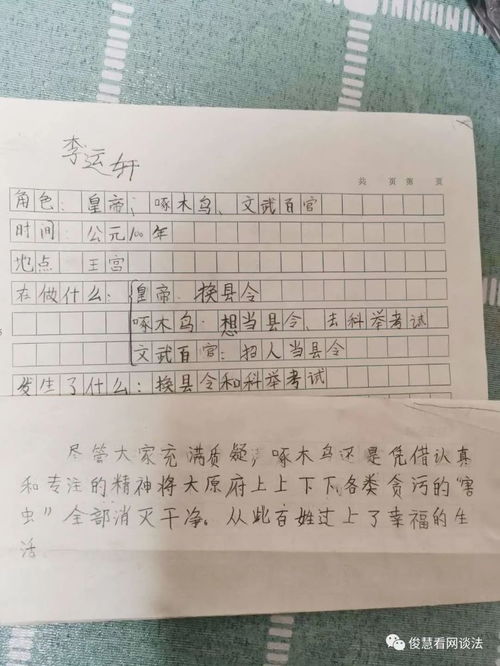 李运轩
共 页 第 页
角色：皇帝；啄木鸟、文武百官
时间：公元100年
地点 王宫
在做什么：皇帝：换县令
啄木鸟：想当县令、去科举考试
文武百官：招人当县令
发生了什么：换县令和科举考试
尽管大家充满质疑，啄木鸟还是凭借认真
和专注的精神将大原府上上下下，各类贪污的“害
虫”全部消灭干净。从此百姓过上了幸福的生
活
俊慧看网谈法